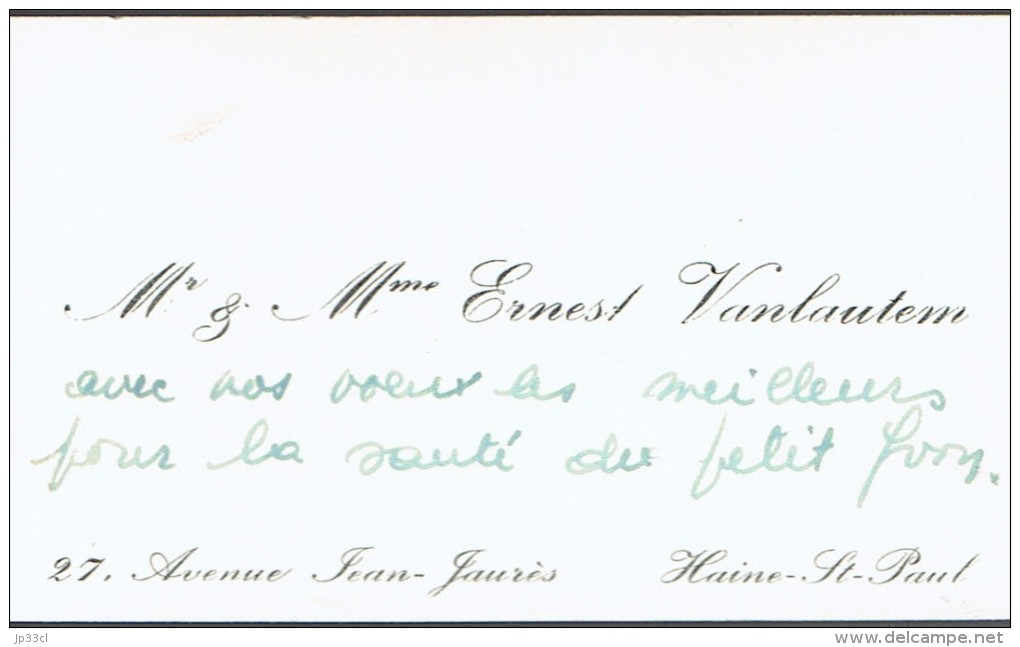 Mr & Mme Ernest Vanlautem
avec nos voeux les meilleurs
pour la santé du petit Yvon.
27, Avenue Jean-Jaurès Haine-St-Paul
jp33cl
www.delcampe.net